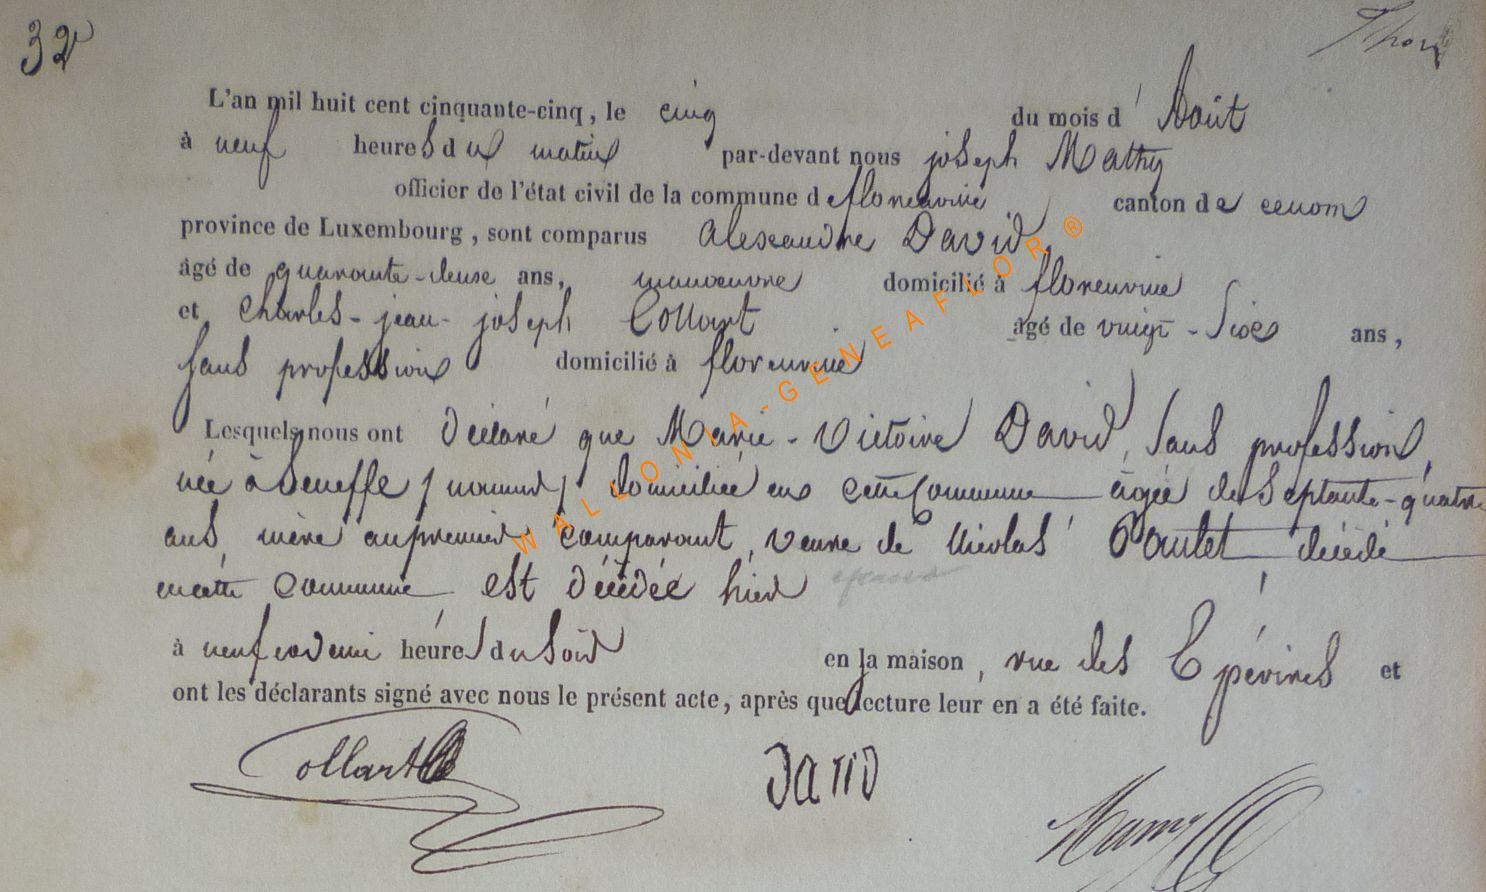 32
L'an mil huit cent cinquante-cinq, le cinq du mois d' Août
à neuf heures du matin par-devant nous joseph Mathy
officier de l'état civil de la commune de florenville canton de
province de Luxembourg, sont comparus alexandre David,
âgé de quarante-deuxe ans, manoeuvre domicilié à florenville
et Charles-jean-joseph Collart âgé de vingt-six ans,
sans profession domicilié à florenville
Lesquels nous ont déclaré que Marie-Victoire David, sans profession,
née à Seneffe domiciliée en cette Commune âgée de septante-quatre
ans, mère au premier comparant, veuve de Nicolas décédé
en cette commune est décédée hier
à neuf et demi heures du soir en la maison, rue des Epérires et
ont les déclarants signé avec nous le présent acte, après que lecture leur en a été faite.
Collart DaviD
WALLONIA-GENEAFLOR ®